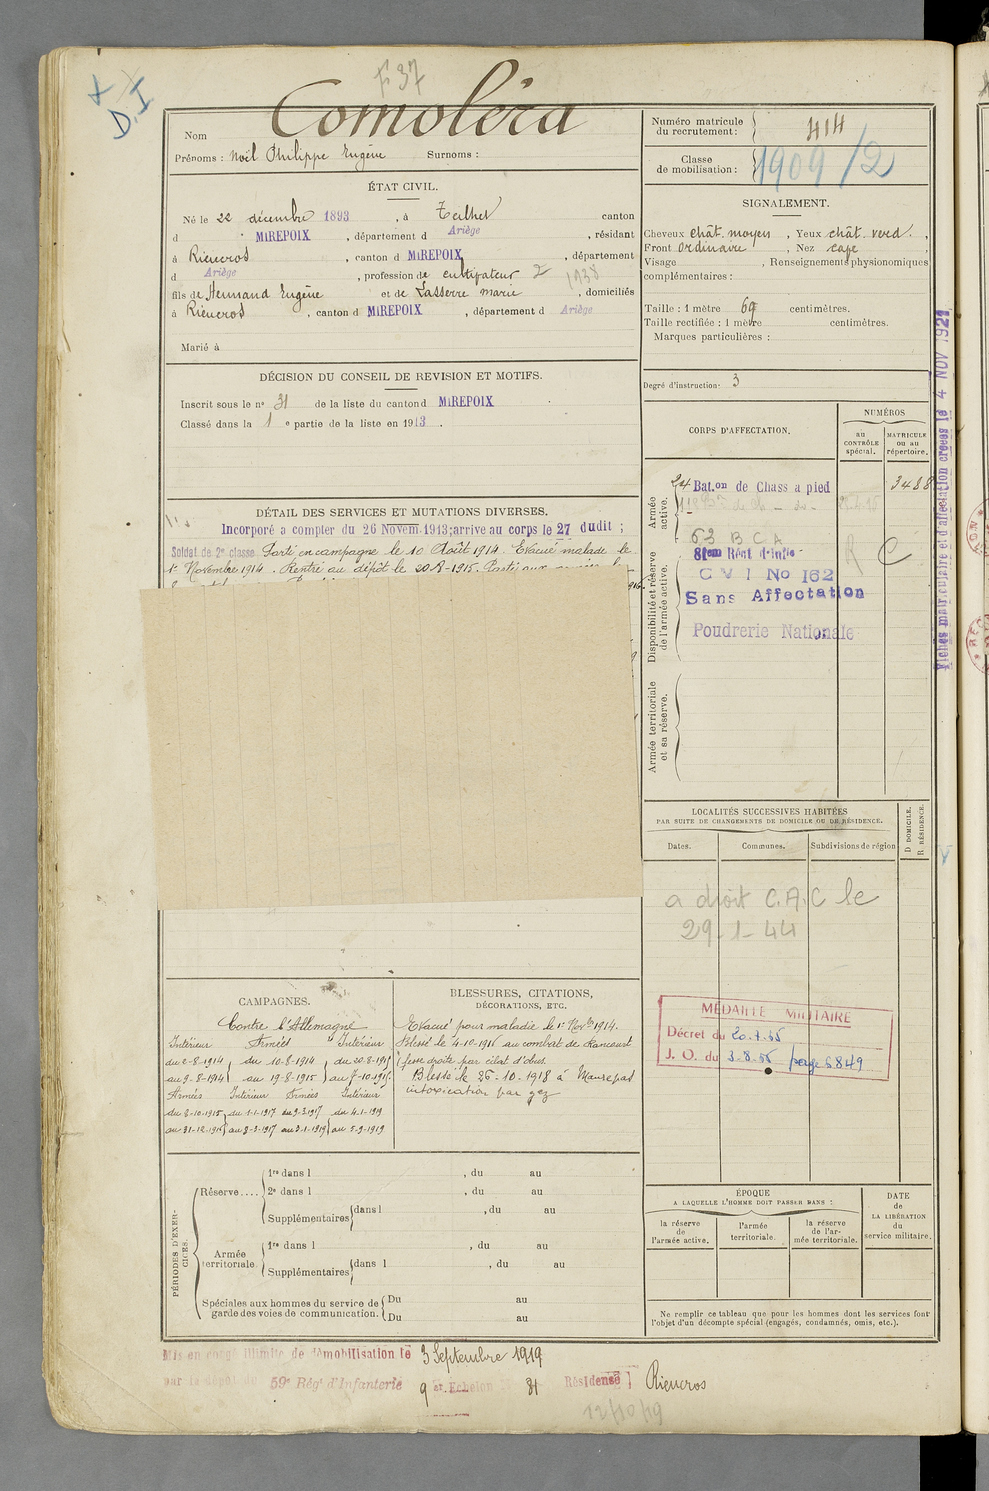 F 37
D.I
Comoléra
Nom
Prénoms : Noël Philippe Eugène Surnoms :
Numéro matricule
du recrutement : 414
Classe
de mobilisation : 1909/2
ÉTAT CIVIL.
Né le 22 décembre 1893, à Teilhet canton
d MIREPOIX, département d Ariège, résidant
à Rieucros, canton d MIREPOIX, département
d Ariège, profession de cultivateur 2 1938
fils de Hermand Eugène et de Lasserre Marie, domiciliés
à Rieucros, canton d MIREPOIX, département d Ariège
Marié à
SIGNALEMENT.
Cheveux chât. moyen, Yeux chât. verd.,
Front ordinaire, Nez cave
Visage , Renseignements physionomiques
complémentaires :
Taille : 1 mètre 69 centimètres.
Taille rectifiée : 1 mètre centimètres.
Marques particulières :
Degré d'instruction : 3
DÉCISION DU CONSEIL DE REVISION ET MOTIFS.
Inscrit sous le n° 31 de la liste du canton d MIREPOIX
Classé dans la 1 e partie de la liste en 1913.
DÉTAIL DES SERVICES ET MUTATIONS DIVERSES.
Incorporé à compter du 26 Novem. 1913; arrivé au corps le 27 dudit ;
Soldat de 2e classe Parti en campagne le 10 Août 1914. Evacué malade le
1er Novembre 1914. Rentré au dépôt le 20-8-1915.
CORPS D'AFFECTATION.
NUMÉROS
au
CONTRÔLE
spécial.
MATRICULE
ou au
répertoire.
Armée
active.
24 Bat.on de Chass à pied 3488
63 B C A
81em Régt d'Infie R C
Disponibilité et réserve
de l'armée active.
C V I No 162
Sans Affectation
Poudrerie Nationale
Armée territoriale
et sa réserve.
Fiches matriculaire et d'affectation créées le 4 NOV 1921
LOCALITÉS SUCCESSIVES HABITÉES
PAR SUITE DE CHANGEMENTS DE DOMICILE OU DE RÉSIDENCE.
Dates. Communes. Subdivisions de région
D DOMICILE.
R RÉSIDENCE.
a droit C.A.C le
29-1-44
MÉDAILLE MILITAIRE
Décret du
J. O. du page 6849
CAMPAGNES.
Contre l'Allemagne
Intérieur Armées Intérieur
du 2-8-1914 du 10-8-1914 du 20-8-1915
au 9-8-1914 au 19-8-1915 au 7-10-1915
Armées Intérieur Armées Intérieur
du 8-10-1915 du 1-1-1917 du 9-3-1917 du 4-1-1919
au 31-12-1916 au 8-3-1917 au 3-1-1919 au 5-9-1919
BLESSURES, CITATIONS,
DÉCORATIONS, ETC.
Evacué pour maladie le 1er Novbre 1914.
Blessé le 4-10-1916 au combat de Rancourt
fesse droite par éclat d'obus.
Blessé le 26-10-1918 à
intoxication par gaz
PÉRIODES D'EXERCICES.
Réserve....
1re dans l , du au
2e dans l , du au
Supplémentaires dans l , du au
Armée
territoriale.
1re dans l , du au
Supplémentaires dans l , du au
Spéciales aux hommes du service de
garde des voies de communication.
Du au
Du au
ÉPOQUE
A LAQUELLE L'HOMME DOIT PASSER DANS :
la réserve
de
l'armée active.
l'armée
territoriale.
la réserve
de l'ar-
mée territoriale.
DATE
de
LA LIBÉRATION
du
service militaire.
Ne remplir ce tableau que pour les hommes dont les services font
l'objet d'un décompte spécial (engagés, condamnés, omis, etc.).
Mis en congé illimité de démobilisation le 3 Septembre 1919
par le dépôt du 59e Régt d'Infanterie 9 e Echelon 31 Résidense Rieucros
12/10/19